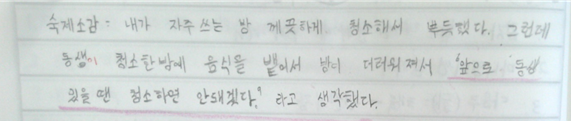 숙제소감: 내가 자주 쓰는 방 깨끗하게 청소해서 뿌듯했다. 그런데
동생이 청소한방에 음식을 뱉어서 방이 더러워져서 '앞으로 동생
있을 땐 청소하면 안돼겠다.' 라고 생각했다.